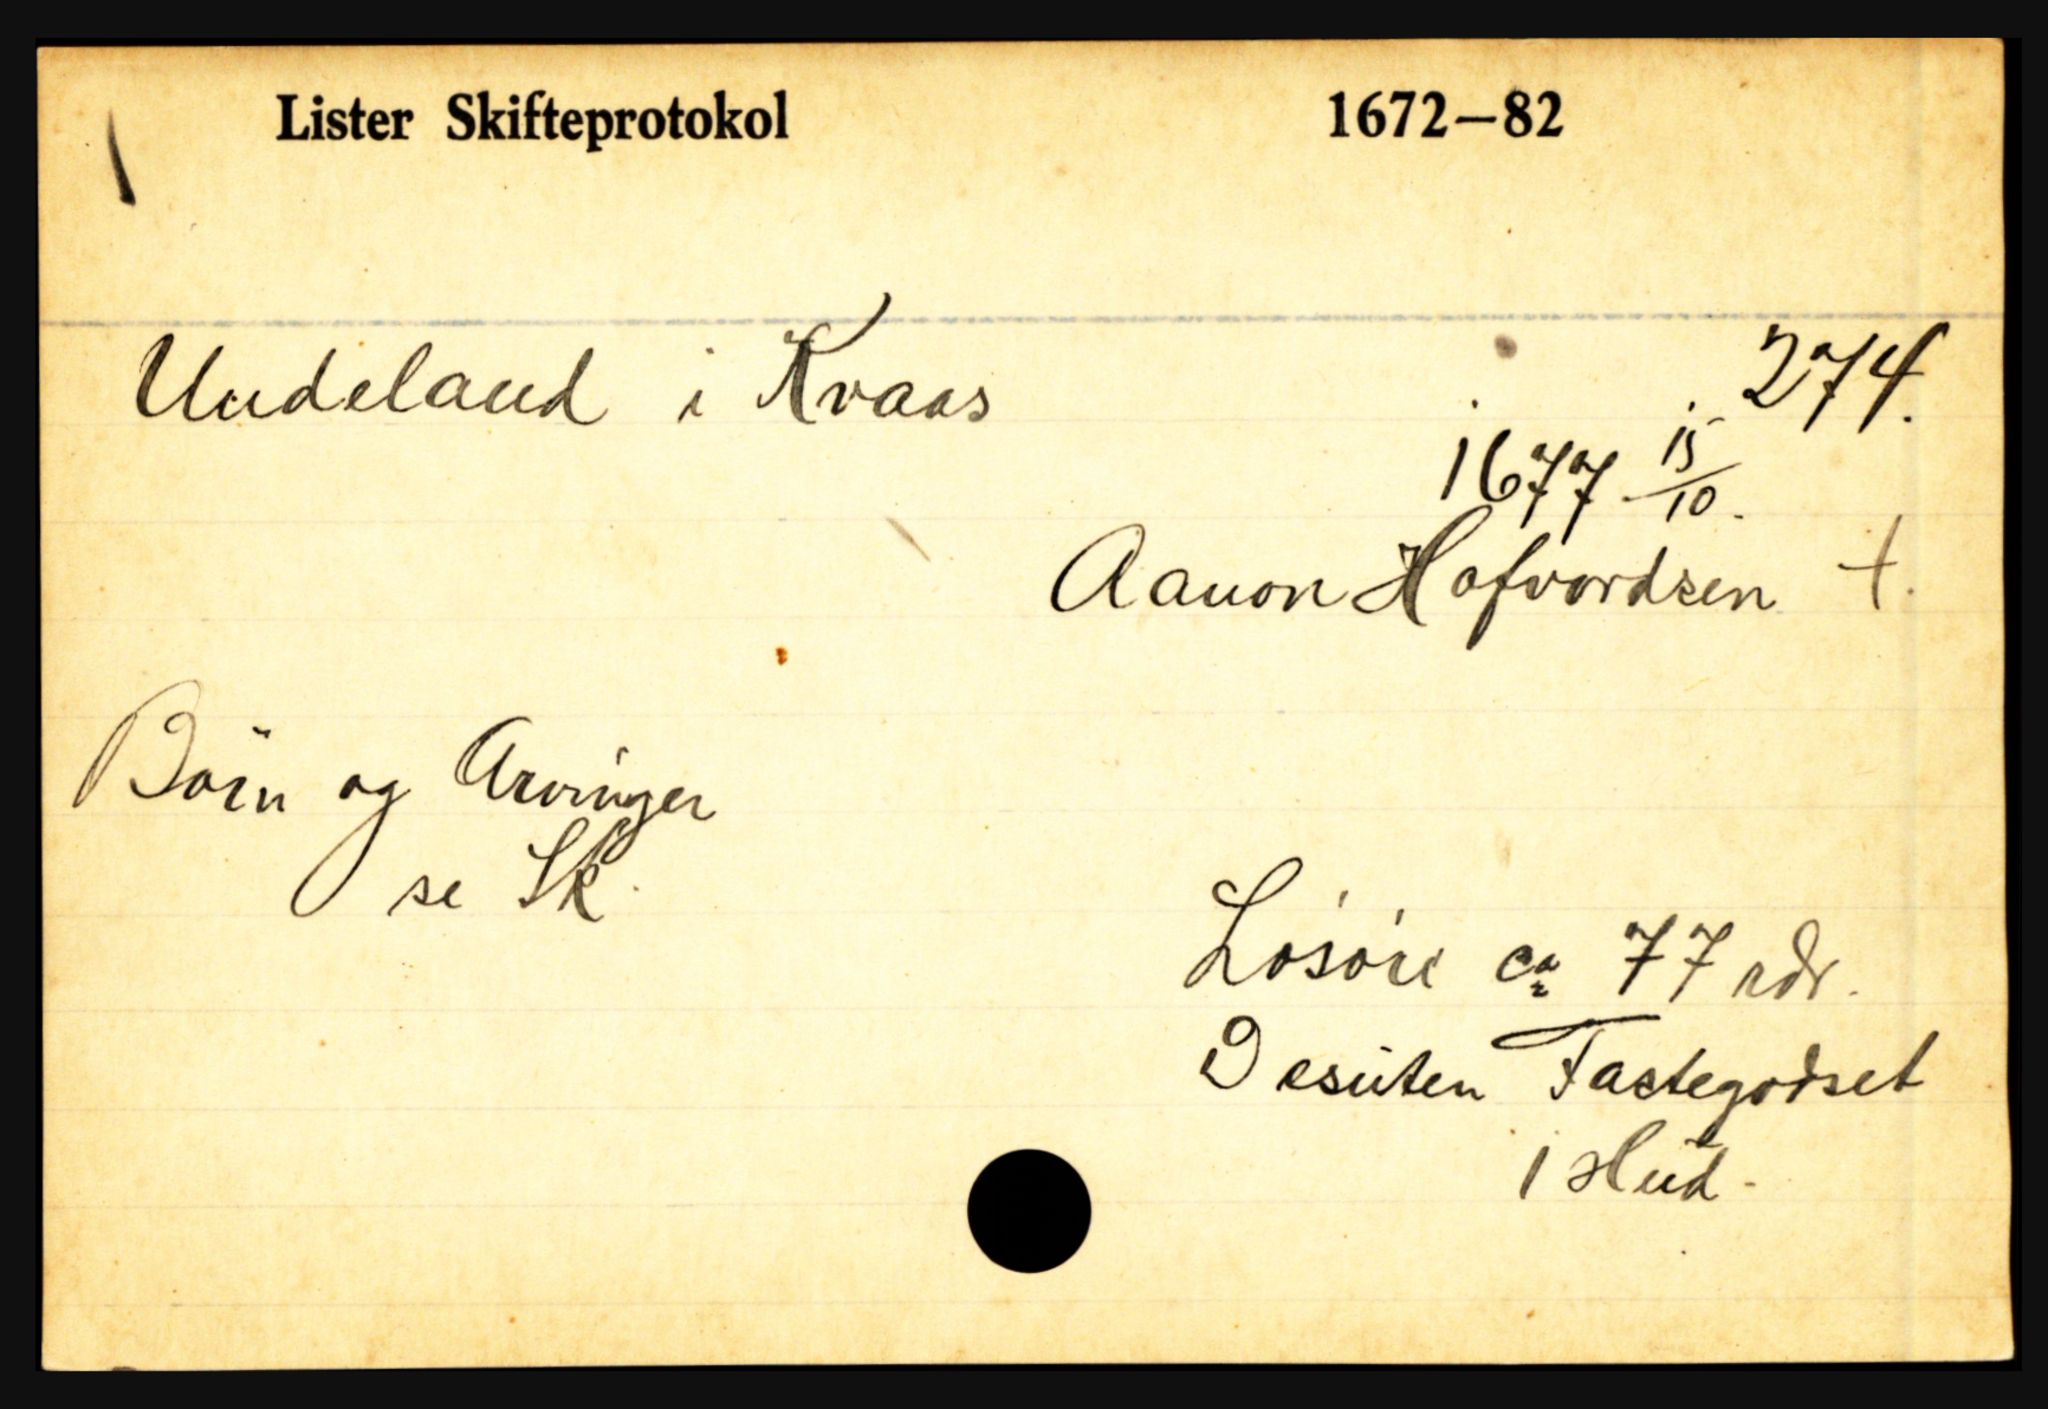 Lister Skifteprotokol 1672–82
Undeland i Kvaas 274.
1677 15/10.
Aanon Hafvordsen †.
Børn og Arvinger
se Sk.
Løsøre ca 77 rdr.
Desuten Fastegodset
1 Hud.